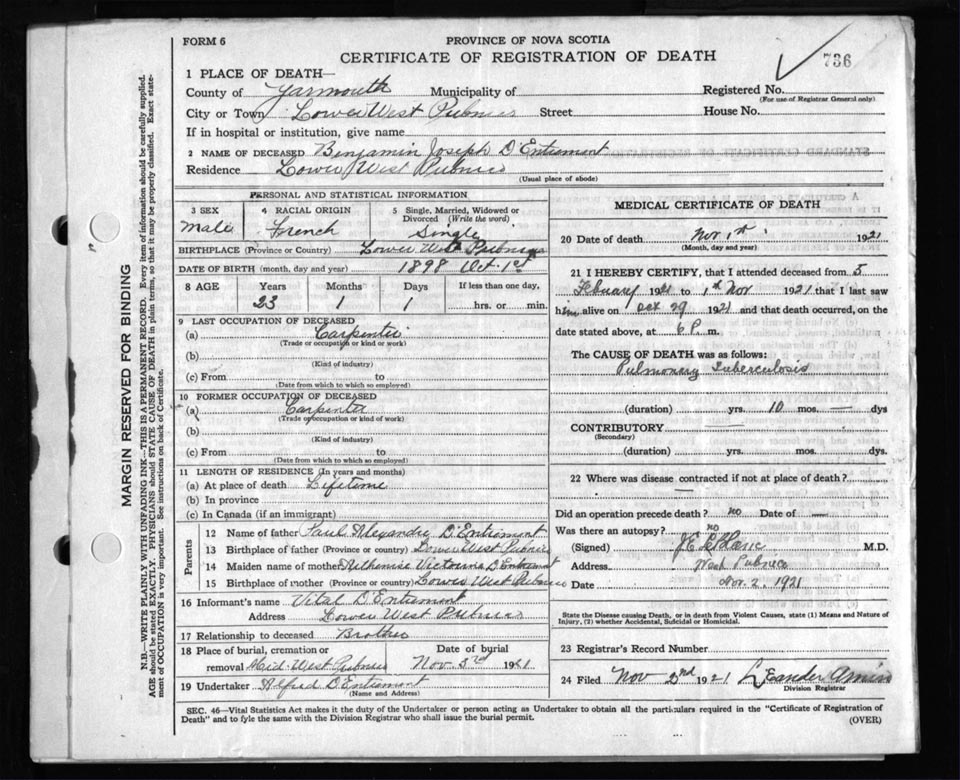 FORM 6
PROVINCE OF NOVA SCOTIA
CERTIFICATE OF REGISTRATION OF DEATH
736
1 PLACE OF DEATH—
County of Yarmouth Municipality of
Registered No.
(For use of Registrar General only)
City or Town Lower West Pubnico Street
House No.
If in hospital or institution, give name
2 NAME OF DECEASED Benjamin Joseph D'Entremont
Residence Lower West Pubnico
(Usual place of abode)
PERSONAL AND STATISTICAL INFORMATION
3 SEX
Male
4 RACIAL ORIGIN
French
5 Single, Married, Widowed or
Divorced (Write the word)
Single
BIRTHPLACE (Province or Country) Lower West Pubnico
DATE OF BIRTH (month, day and year) 1898 Oct. 1st
8 AGE Years Months Days If less than one day,
23 1 1 hrs. or min.
9 LAST OCCUPATION OF DECEASED
(a) Carpenter
(Trade or occupation or kind of work)
(b)
(Kind of industry)
(c) From to
(Date from which to which so employed)
10 FORMER OCCUPATION OF DECEASED
(a) Carpenter
(Trade or occupation or kind of work)
(b)
(Kind of industry)
(c) From to
(Date from which to which so employed)
11 LENGTH OF RESIDENCE (In years and months)
(a) At place of death Lifetime
(b) In province
(c) In Canada (if an immigrant)
Parents
12 Name of father Paul Alexandre D'Entremont
13 Birthplace of father (Province or country) Lower West Pubnico
14 Maiden name of mother D'Entremont
15 Birthplace of mother (Province or country) Lower West Pubnico
16 Informant's name Vital D'Entremont
Address Lower West Pubnico
17 Relationship to deceased Brother
18 Place of burial, cremation or Date of burial
removal Mid-West Pubnico Nov 3rd 1921
19 Undertaker Alfred D'Entremont
(Name and Address)
MEDICAL CERTIFICATE OF DEATH
20 Date of death Nov 1st 1921
(Month, day and year)
21 I HEREBY CERTIFY, that I attended deceased from 5
February 1921 to 1st Nov 1921 that I last saw
him alive on Oct 29 1921 and that death occurred, on the
date stated above, at 6 P. m.
The CAUSE OF DEATH was as follows:
Pulmonary Tuberculosis
(duration) yrs. 10 mos. — dys
CONTRIBUTORY
(Secondary)
(duration) yrs. mos. dys.
22 Where was disease contracted if not at place of death?
Did an operation precede death? no Date of —
Was there an autopsy? no
(Signed) LeBlanc M.D.
Address West Pubnico
Date Nov. 2, 1921
State the Disease causing Death, or in death from Violent Causes, state (1) Means and Nature of
Injury, (2) whether Accidental, Suicidal or Homicidal.
23 Registrar's Record Number
24 Filed Nov 2nd 1921 Leander Amiro
Division Registrar
SEC. 46—Vital Statistics Act makes it the duty of the Undertaker or person acting as Undertaker to obtain all the particulars required in the "Certificate of Registration of
Death" and to fyle the same with the Division Registrar who shall issue the burial permit.
(OVER)
MARGIN RESERVED FOR BINDING
N.B.—WRITE PLAINLY WITH UNFADING INK—THIS IS A PERMANENT RECORD. Every item of information should be carefully supplied.
AGE should be stated EXACTLY. PHYSICIANS should STATE CAUSE OF DEATH in plain terms, so that it may be properly classified. Exact state-
ment of OCCUPATION is very important. See instructions on back of Certificate.